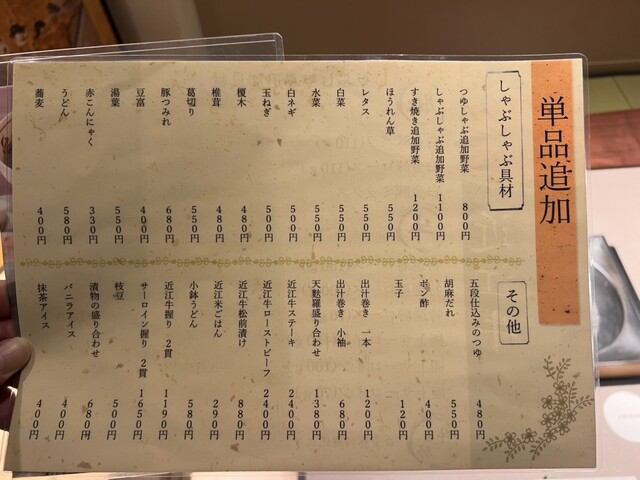 単品追加
しゃぶしゃぶ具材
つゆしゃぶ追加野菜 800円
しゃぶしゃぶ追加野菜 1100円
すき焼き追加野菜 1200円
ほうれん草 550円
レタス 550円
白菜 550円
水菜 550円
白ネギ 500円
玉ねぎ 500円
榎木 480円
椎茸 480円
葛切り 550円
豚つみれ 680円
豆富 400円
湯葉 550円
赤こんにゃく 330円
うどん 580円
蕎麦 400円
その他
五段仕込みのつゆ 480円
胡麻だれ 550円
ポン酢 400円
玉子 120円
出汁巻き 一本 1200円
出汁巻き 小袖 680円
天麩羅盛り合わせ 1380円
近江牛ステーキ 2400円
近江牛ローストビーフ 2400円
近江牛松前漬け 880円
近江米ごはん 290円
小鉢うどん 580円
近江牛握り 2貫 1190円
サーロイン握り 2貫 1650円
枝豆 500円
漬物の盛り合わせ 680円
バニラアイス 400円
抹茶アイス 400円